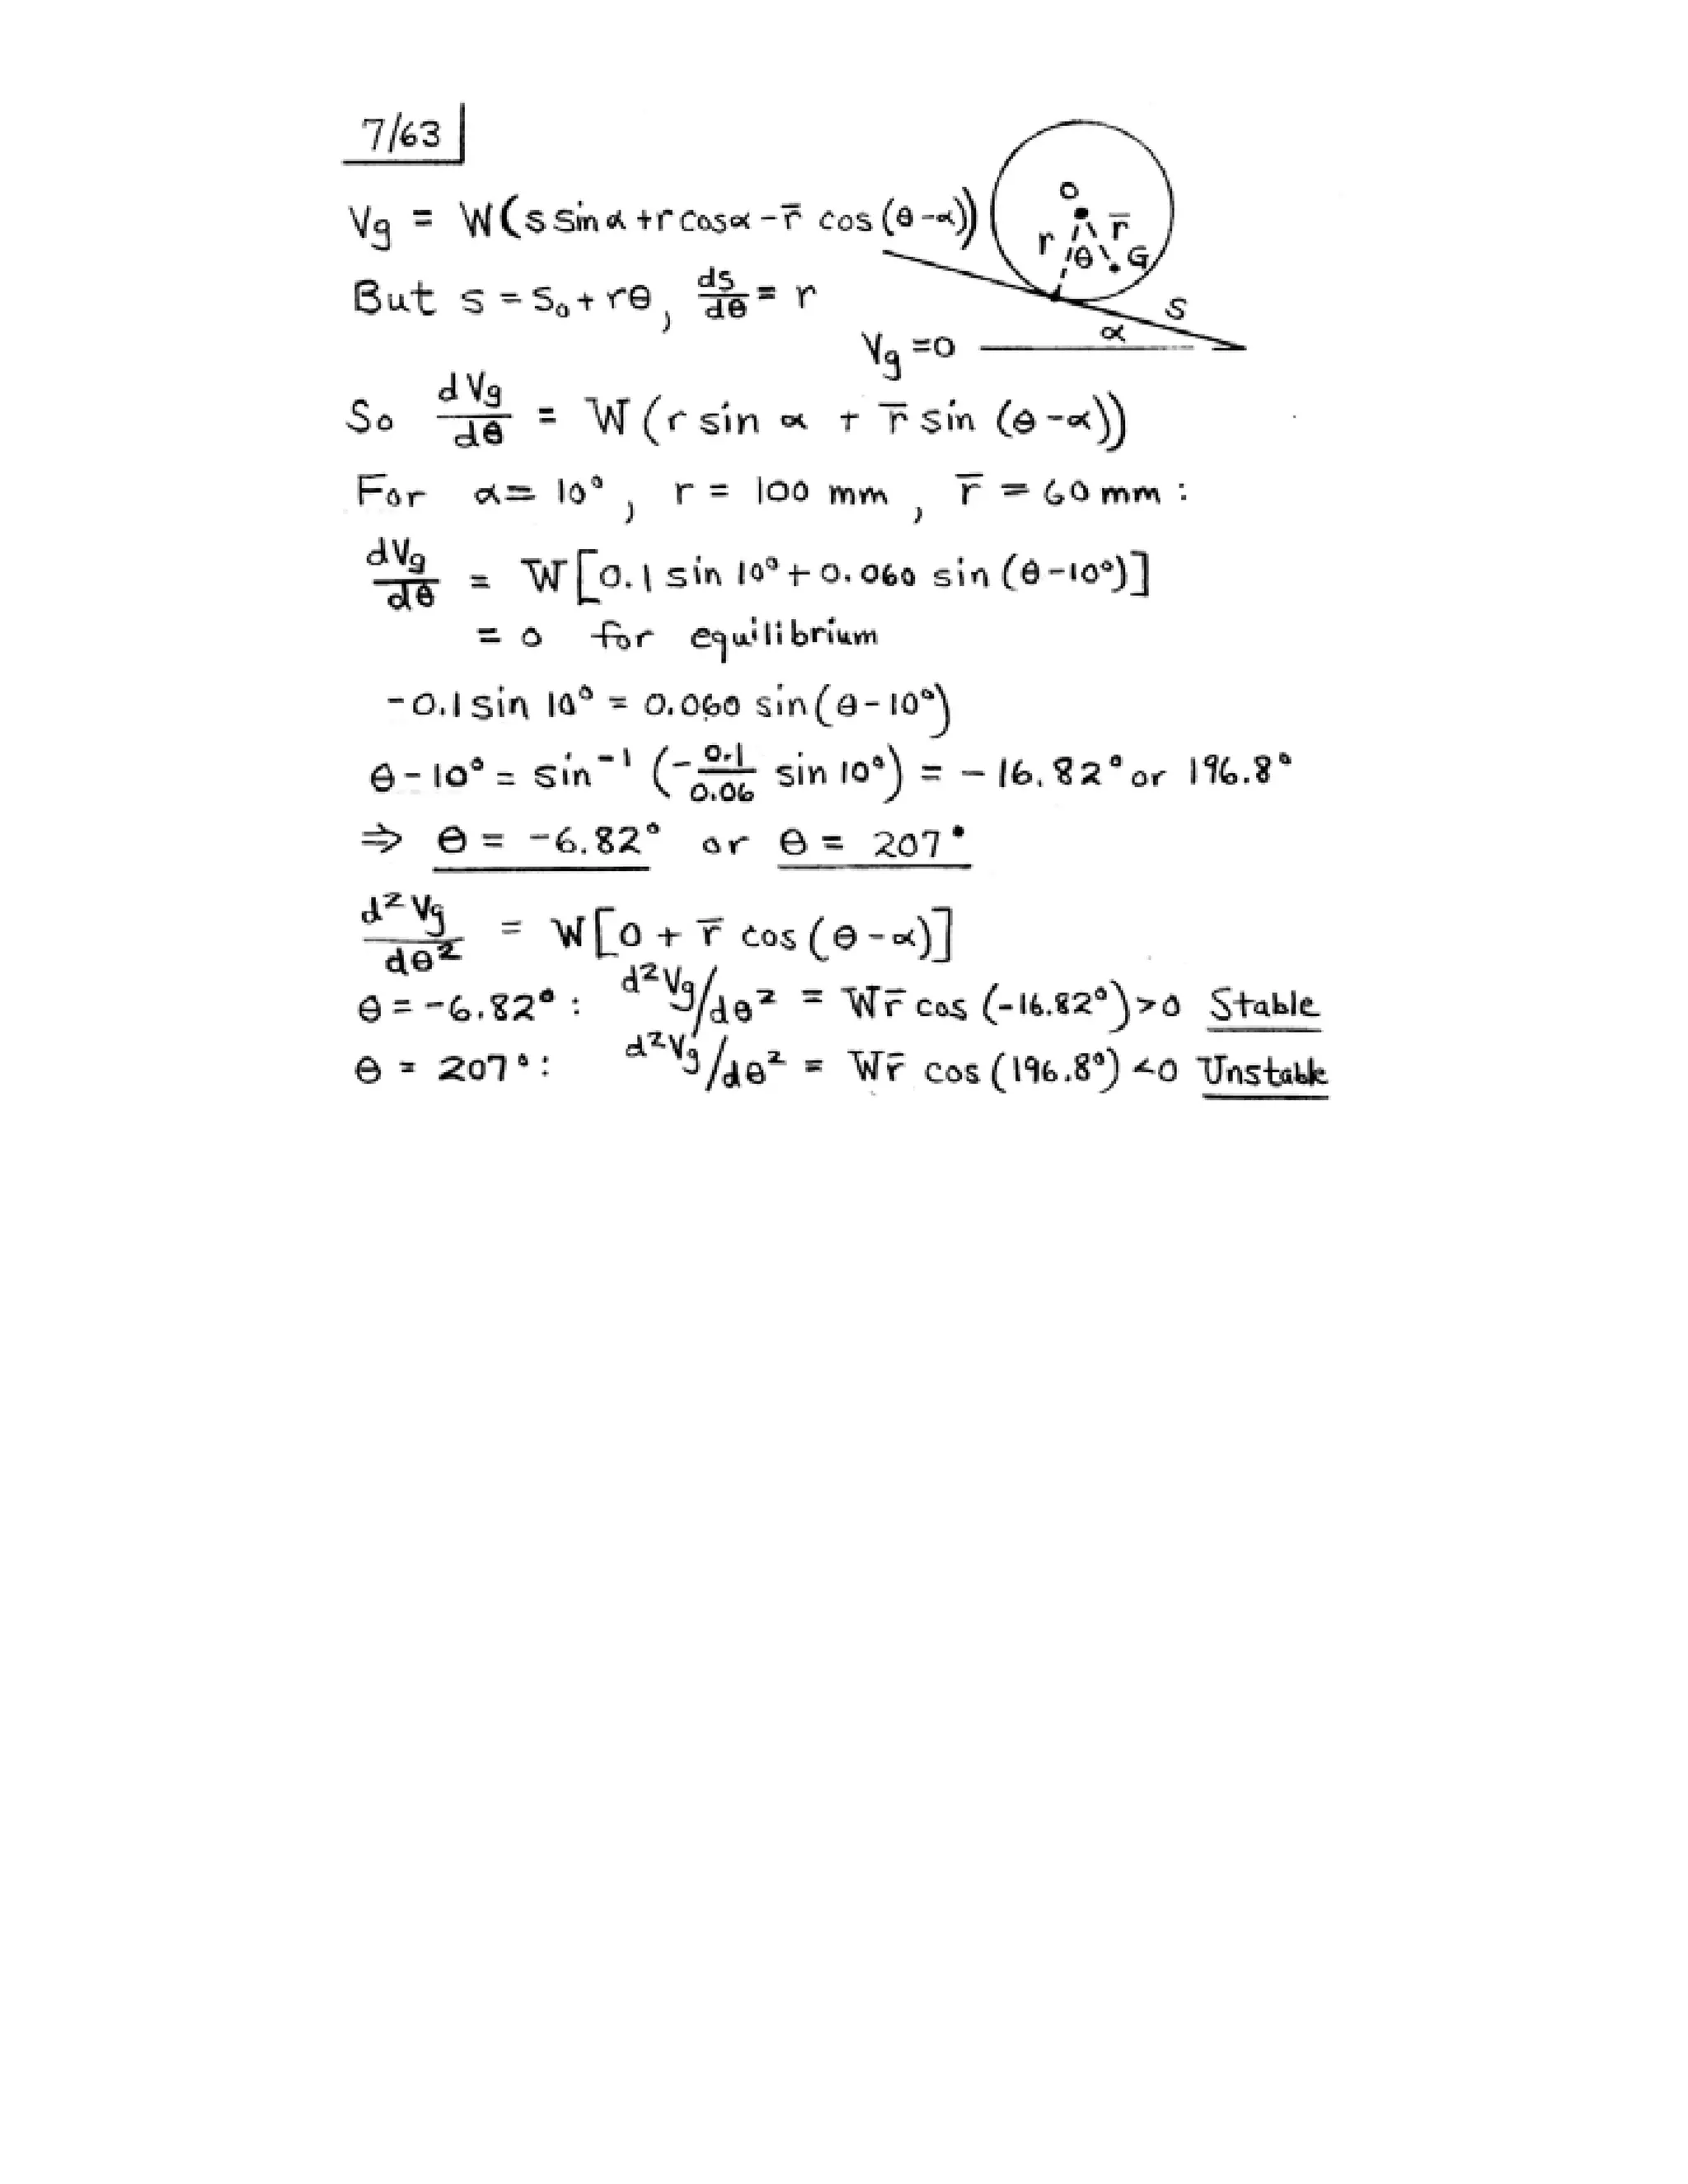 7/63
Vg = W(s sin α + r cos α − r̄ cos (θ−α))
O
r θ r̄ G
But s = s₀ + rθ, ds/dθ = r
s
α
Vg = 0
So dVg/dθ = W (r sin α + r̄ sin (θ−α))
For α = 10°, r = 100 mm, r̄ = 60 mm :
dVg/dθ = W[0.1 sin 10° + 0.060 sin (θ−10°)]
= 0 for equilibrium
−0.1 sin 10° = 0.060 sin(θ−10°)
θ−10° = sin⁻¹ (−0.1/0.06 sin 10°) = −16.82° or 196.8°
⇒ θ = −6.82° or θ = 207°
d²Vg/dθ² = W[0 + r̄ cos (θ−α)]
θ = −6.82° : d²Vg/dθ² = Wr̄ cos (−16.82°) > 0 Stable
θ = 207° : d²Vg/dθ² = Wr̄ cos (196.8°) < 0 Unstable